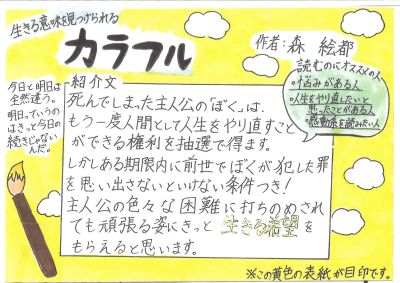 生きる意味を見つけられる
カラフル
作者:森 絵都
読むのにオススメの人
・悩みがある人
・人生をやり直したいと
思ったことがある人
・感動系を読みたい人
今日と明日は
全然違う。
明日っていうの
はきっと今日の
続きじゃない
んだ。
紹介文
死んでしまった主人公の「ぼく」は、
もう一度人間として人生をやり直すこと
ができる権利を抽選で得ます。
しかしある期限内に前世でぼくが犯した罪
を思い出さないといけない条件つき!
主人公の色々な困難に打ちのめされ
ても頑張る姿にきっと生きる希望を
もらえると思います。
※この黄色の表紙が目印です。